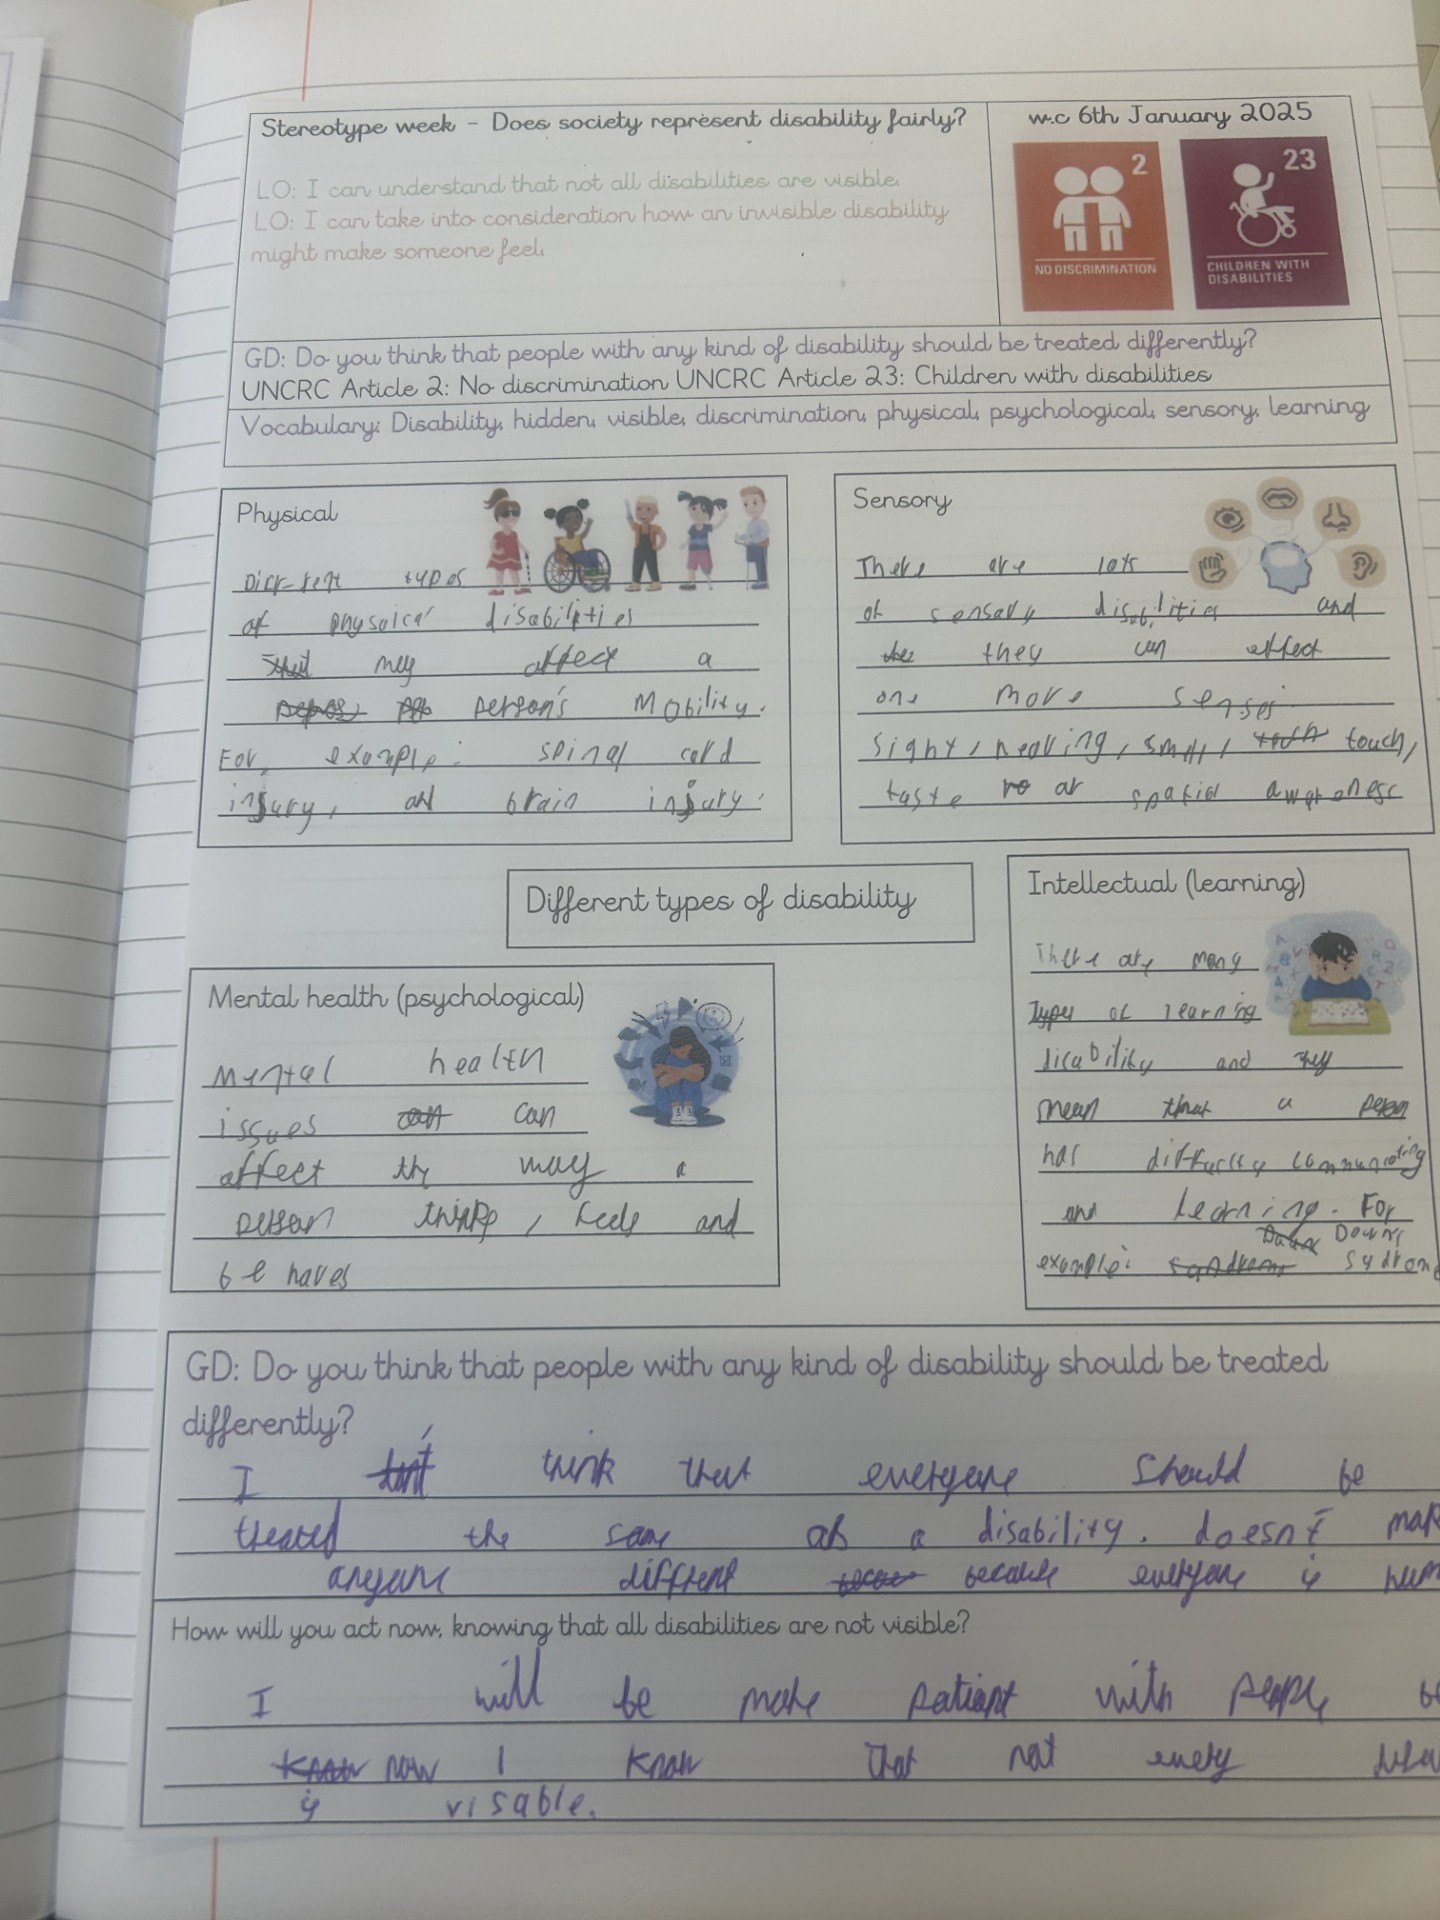 Stereotype week - Does society represent disability fairly?
w.c 6th January 2025
LO: I can understand that not all disabilities are visible.
LO: I can take into consideration how an invisible disability
might make someone feel.
2
NO DISCRIMINATION
23
CHILDREN WITH
DISABILITIES
GD: Do you think that people with any kind of disability should be treated differently?
UNCRC Article 2: No discrimination UNCRC Article 23: Children with disabilities
Vocabulary: Disability, hidden, visible, discrimination, physical, psychological, sensory, learning
Physical
types
of disabilities
may affect a
person's Mobility.
For example: spinal cord
injury, brain injury.
Sensory
There are lots
of sensory disabilities and
they can effect
one more
sight, hearing, smell, touch,
taste or spatial
Different types of disability
Intellectual (learning)
There are many
Types of learning
disability and they
mean that a person
has communicating
and learning. For
example: Downs
Mental health (psychological)
Mental health
issues can
affect the way a
person thinks, feels and
behaves
GD: Do you think that people with any kind of disability should be treated
differently?
I think that everyone should be
treated the same as a disability. doesn't
anyone because everyone is
How will you act now, knowing that all disabilities are not visible?
I will be more patient with people
now I know That not every
is visable.